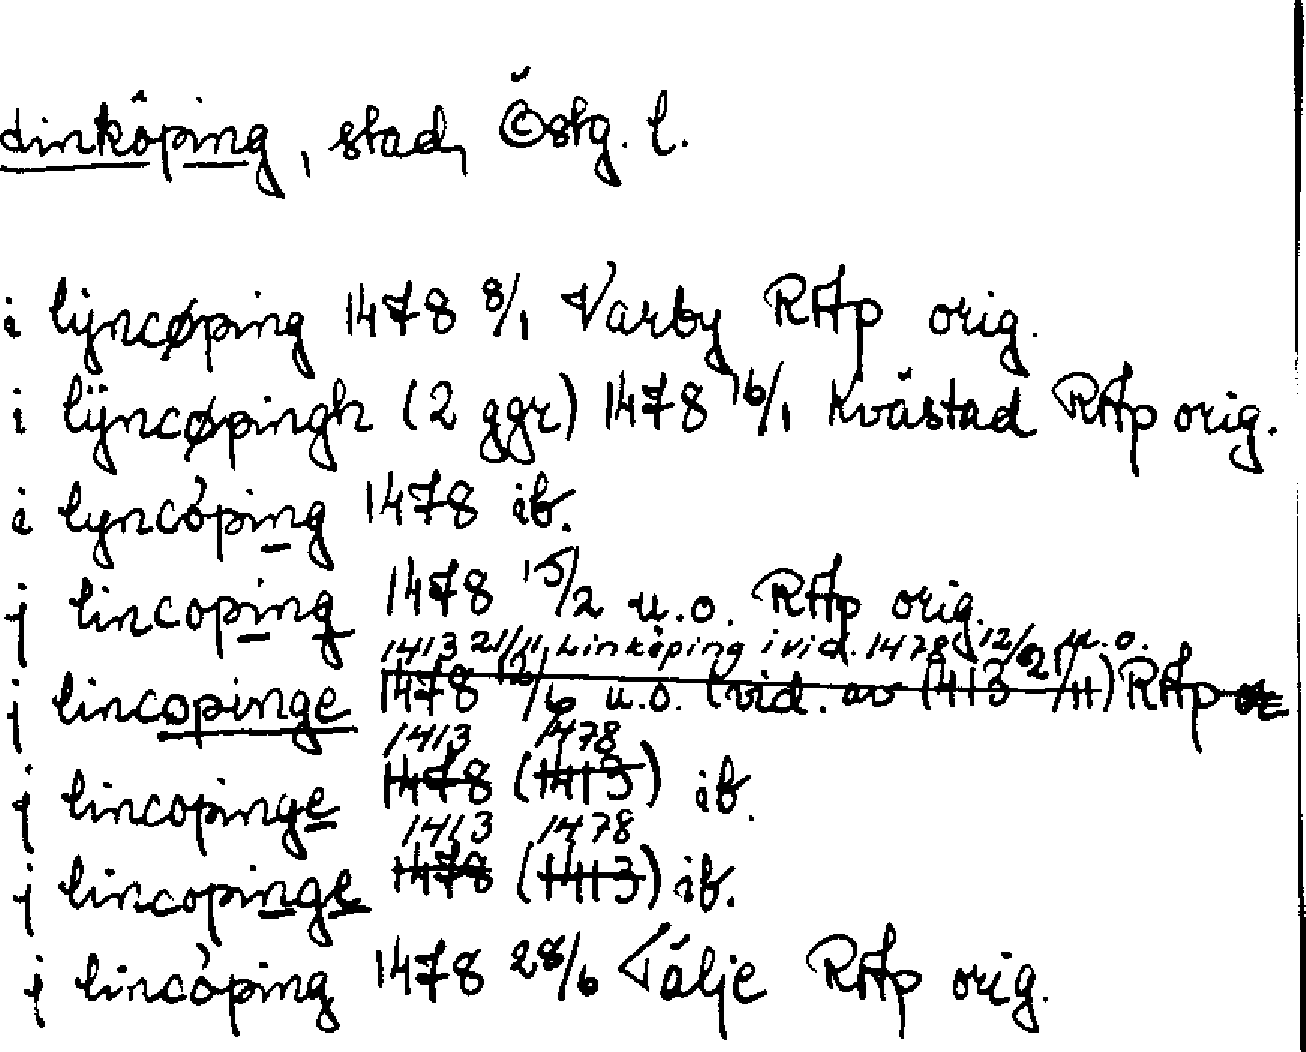 Linköping, stad, Östg. l.
i lijncøping 1478 8/1 Varby RAp orig.
i lÿncøpingh (2 ggr) 1478 16/1 Kvästad RAp orig.
i lyncöping 1478 ib.
j lincoping 1478 15/2 u.o. RAp orig.
1413 21/11 Linköping i vid. 1478 12/6 u.o.
j lincopinge 1478 12/6 u.o. (vid. av 1413 21/11) RAp
1413 1478
j lincopinge 1478 (1413) ib.
1413 1478
j lincopinge 1478 (1413) ib.
j lincöping 1478 28/6 Tälje RAp orig.